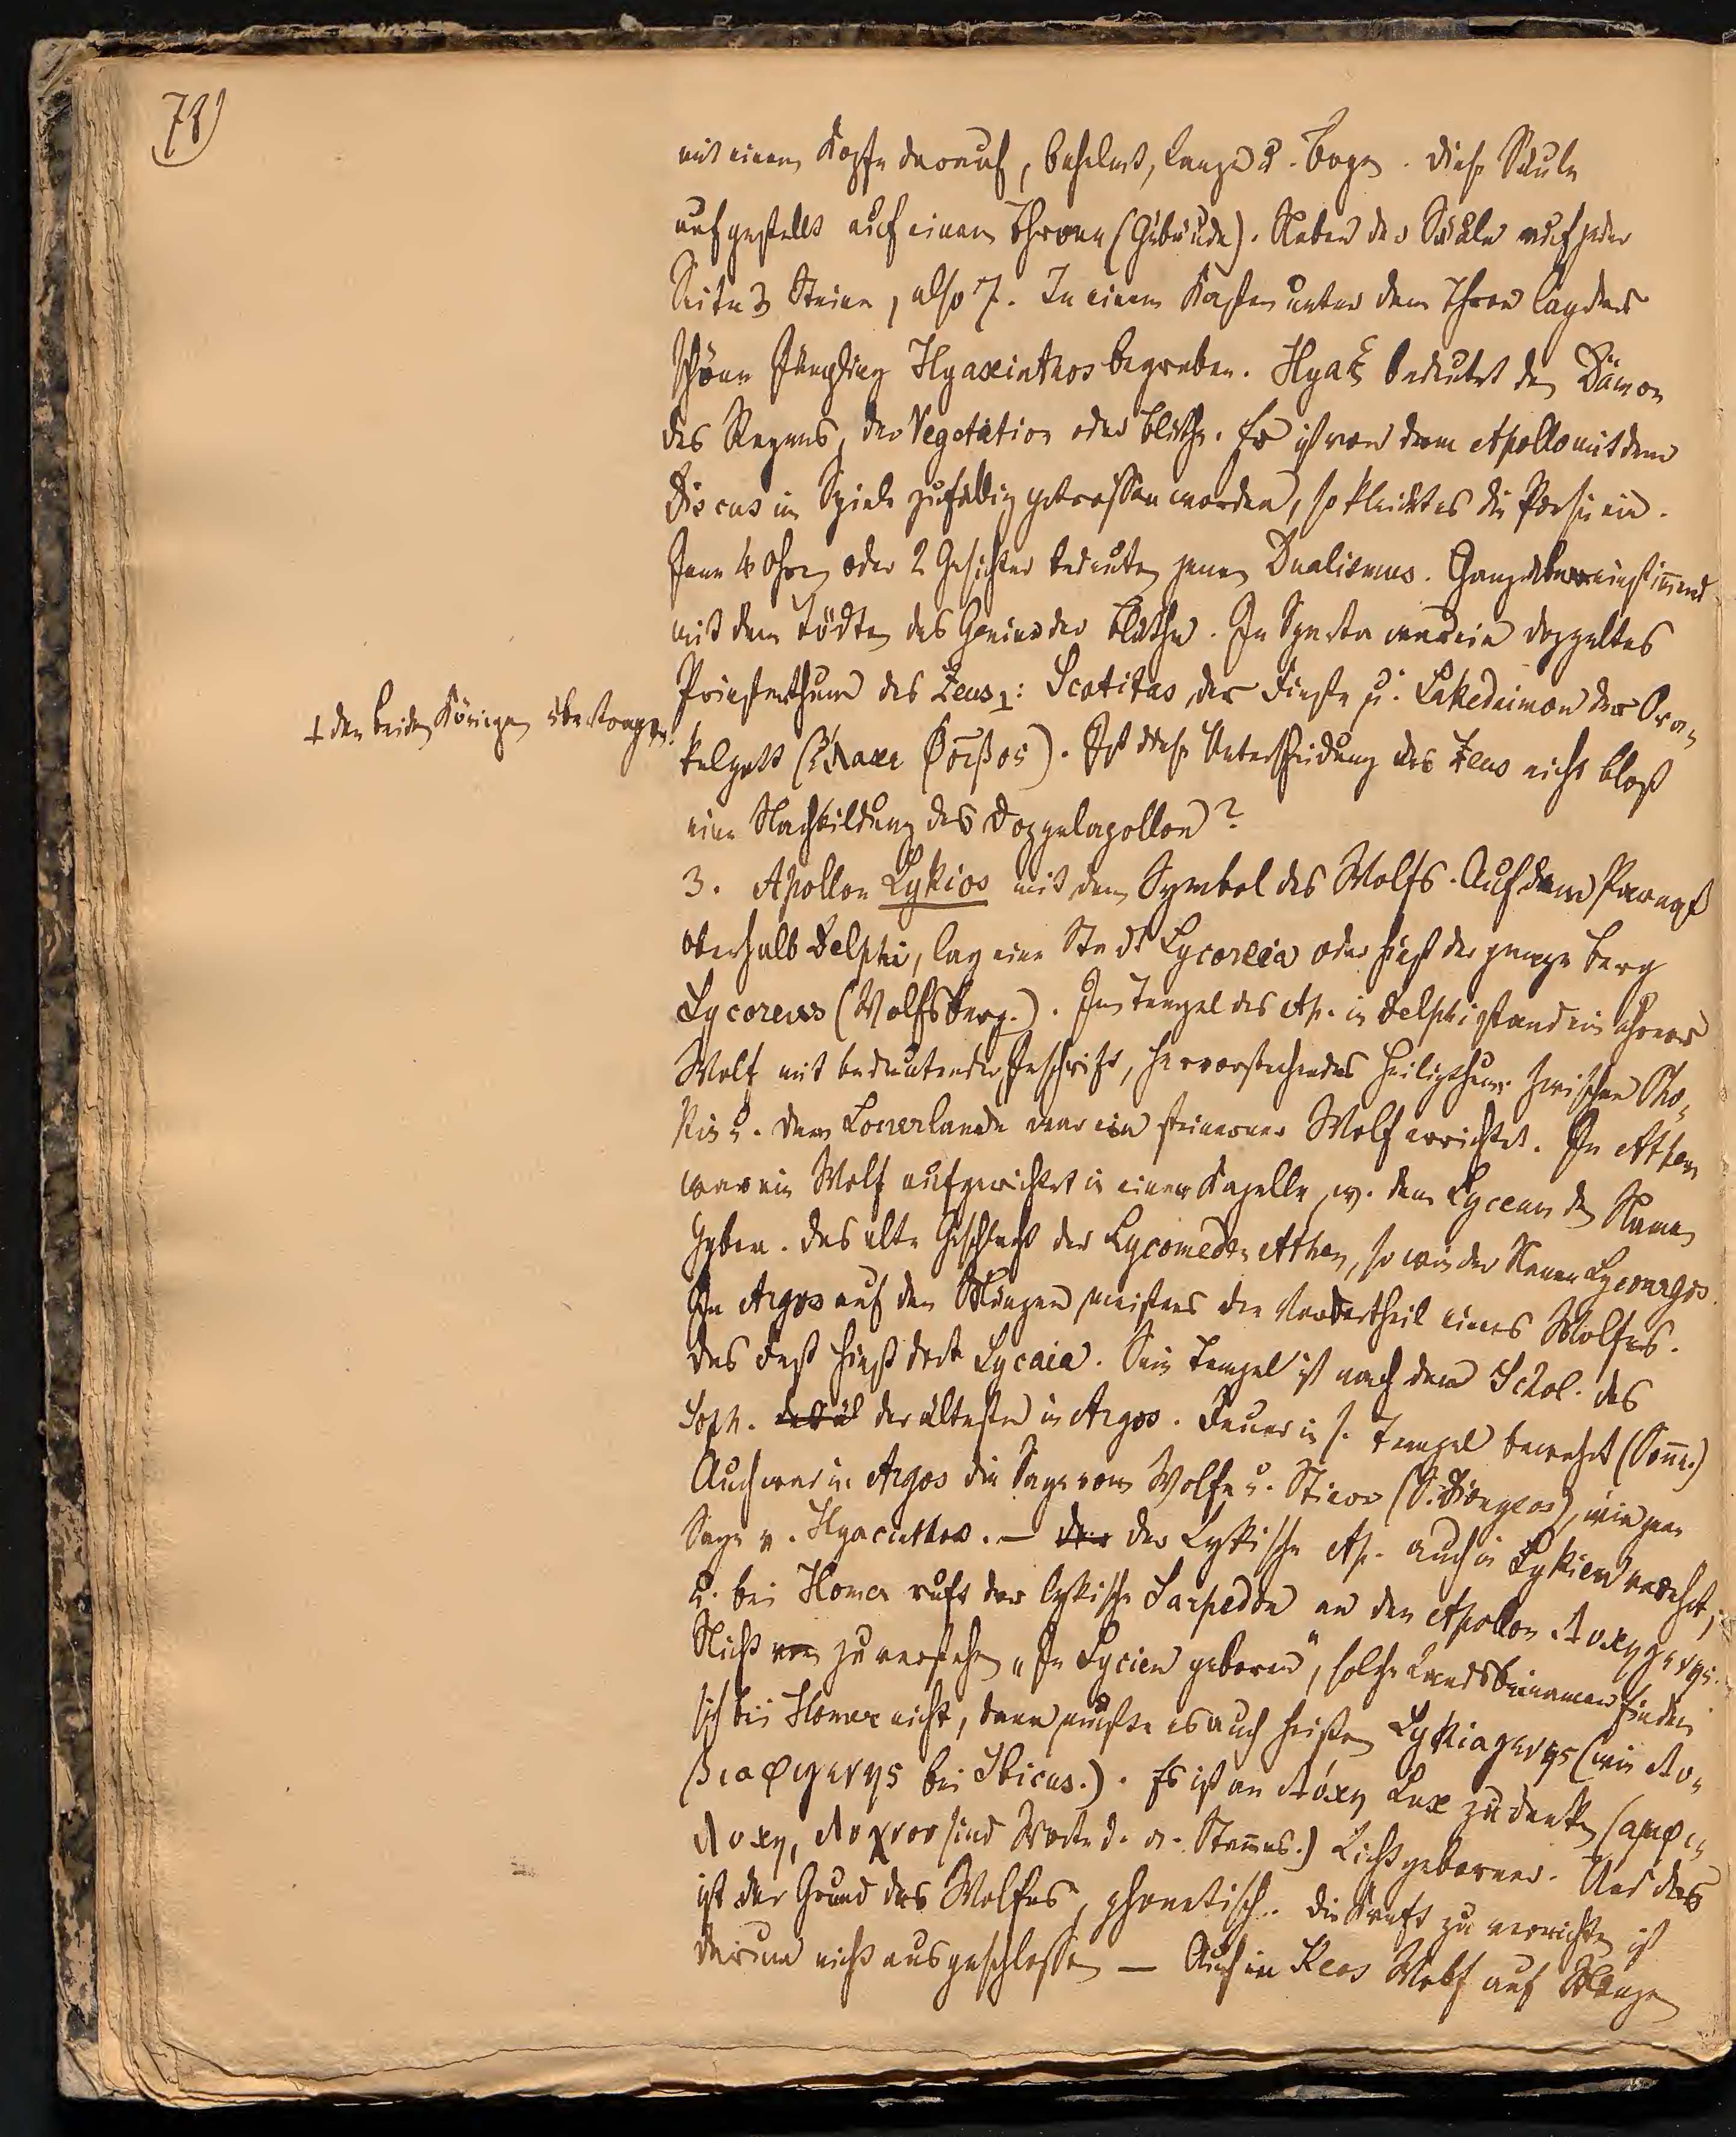 78)
mit einem Kopfe darauf, behelmt, Lanze u. Bogen. Diese Säule
aufgestellt auf einem Throne (Gebäude). Neben der Säule auf jeder
Seite 3 Steine, also 7. In einem Kasten unter dem Thron lag der
schöne Jüngling Hyacinthos begraben. Hyaξ bedeutet den Dämon
des Regens, der Vegetation oder Blüthe. Er ist von dem Apollo mit dem
Discus im Spiele zufällig getroffen worden, so kleidet es die Poesie ein.
Jene 4 Ohren oder 2 Gesichter bedeuten jenen Dualismus. Ganz übereinstimmend
mit dem Tödten des Genius der Blüthe. In Sparta war ein doppeltes
Priesterthum des Zeus⊥: Scotitas der Finstre u. Lakedaimon der Ora-
⊥ den beiden Königen übertragen.
kelgott (Φοῖβος). Ist diese Unterscheidung des Zeus nicht bloß
eine Nachbildung des Doppelapollon?
3. Apollon Lykios mit dem Symbol des Wolfs. Auf dem Parnaß
oberhalb Delphi, lag eine Stadt Lycoreia oder hieß der ganze Berg
Lycoreus (Wolfsberg.). Im Tempel des Ap. in Delphi stand ein eherner
Wolf mit bedeutender Inschrift, hervorstechendes Heiligthum. Zwischen Pho-
kis u. dem Locrerlande war ein steinerner Wolf errichtet. In Athen
war ein Wolf aufgerichtet in einer Kapelle, w. dem Lyceum den Namen
geben. Das alte Geschlecht der Lycomeden Athen, so wie der Namen Lycourgos.
In Argos auf den Münzen meistens der Vordertheil eines Wolfes.
Das Fest hieß dort Lycaia. Sein Tempel ist nach dem Schol. des
Soph. der älteste in Argos. Feuer in s. Tempel bewahrt (Sonne.)
Auch war in Argos die Sage vom Wolfe u. Stiere (S. ), wie jene
Sage v. Hyacinthos. — der Lykische Ap. auch in Lykien verehrt,
u. bei Homer ruft der lykische Sarpedon an den Apollon Λυκηγενής.
Nicht zu verstehen „In Lycien geboren", solche Landsbeinamen finden
sich bei Homer nicht, dann müßte es auch heißen Lykiagenης (wie Λυ-
bei Ibicus.). Es ist an λύκη Lux zu denken (αμφι-
λυκη, λυχνος sind Worte d. Stammes.) Lichtgeborner. Und das
ist der Grund des Wolfes, phonetisch. Die Kraft zu vernichten ist
darum nicht ausgeschlossen — Auch in Keos Wolf auf Münzen